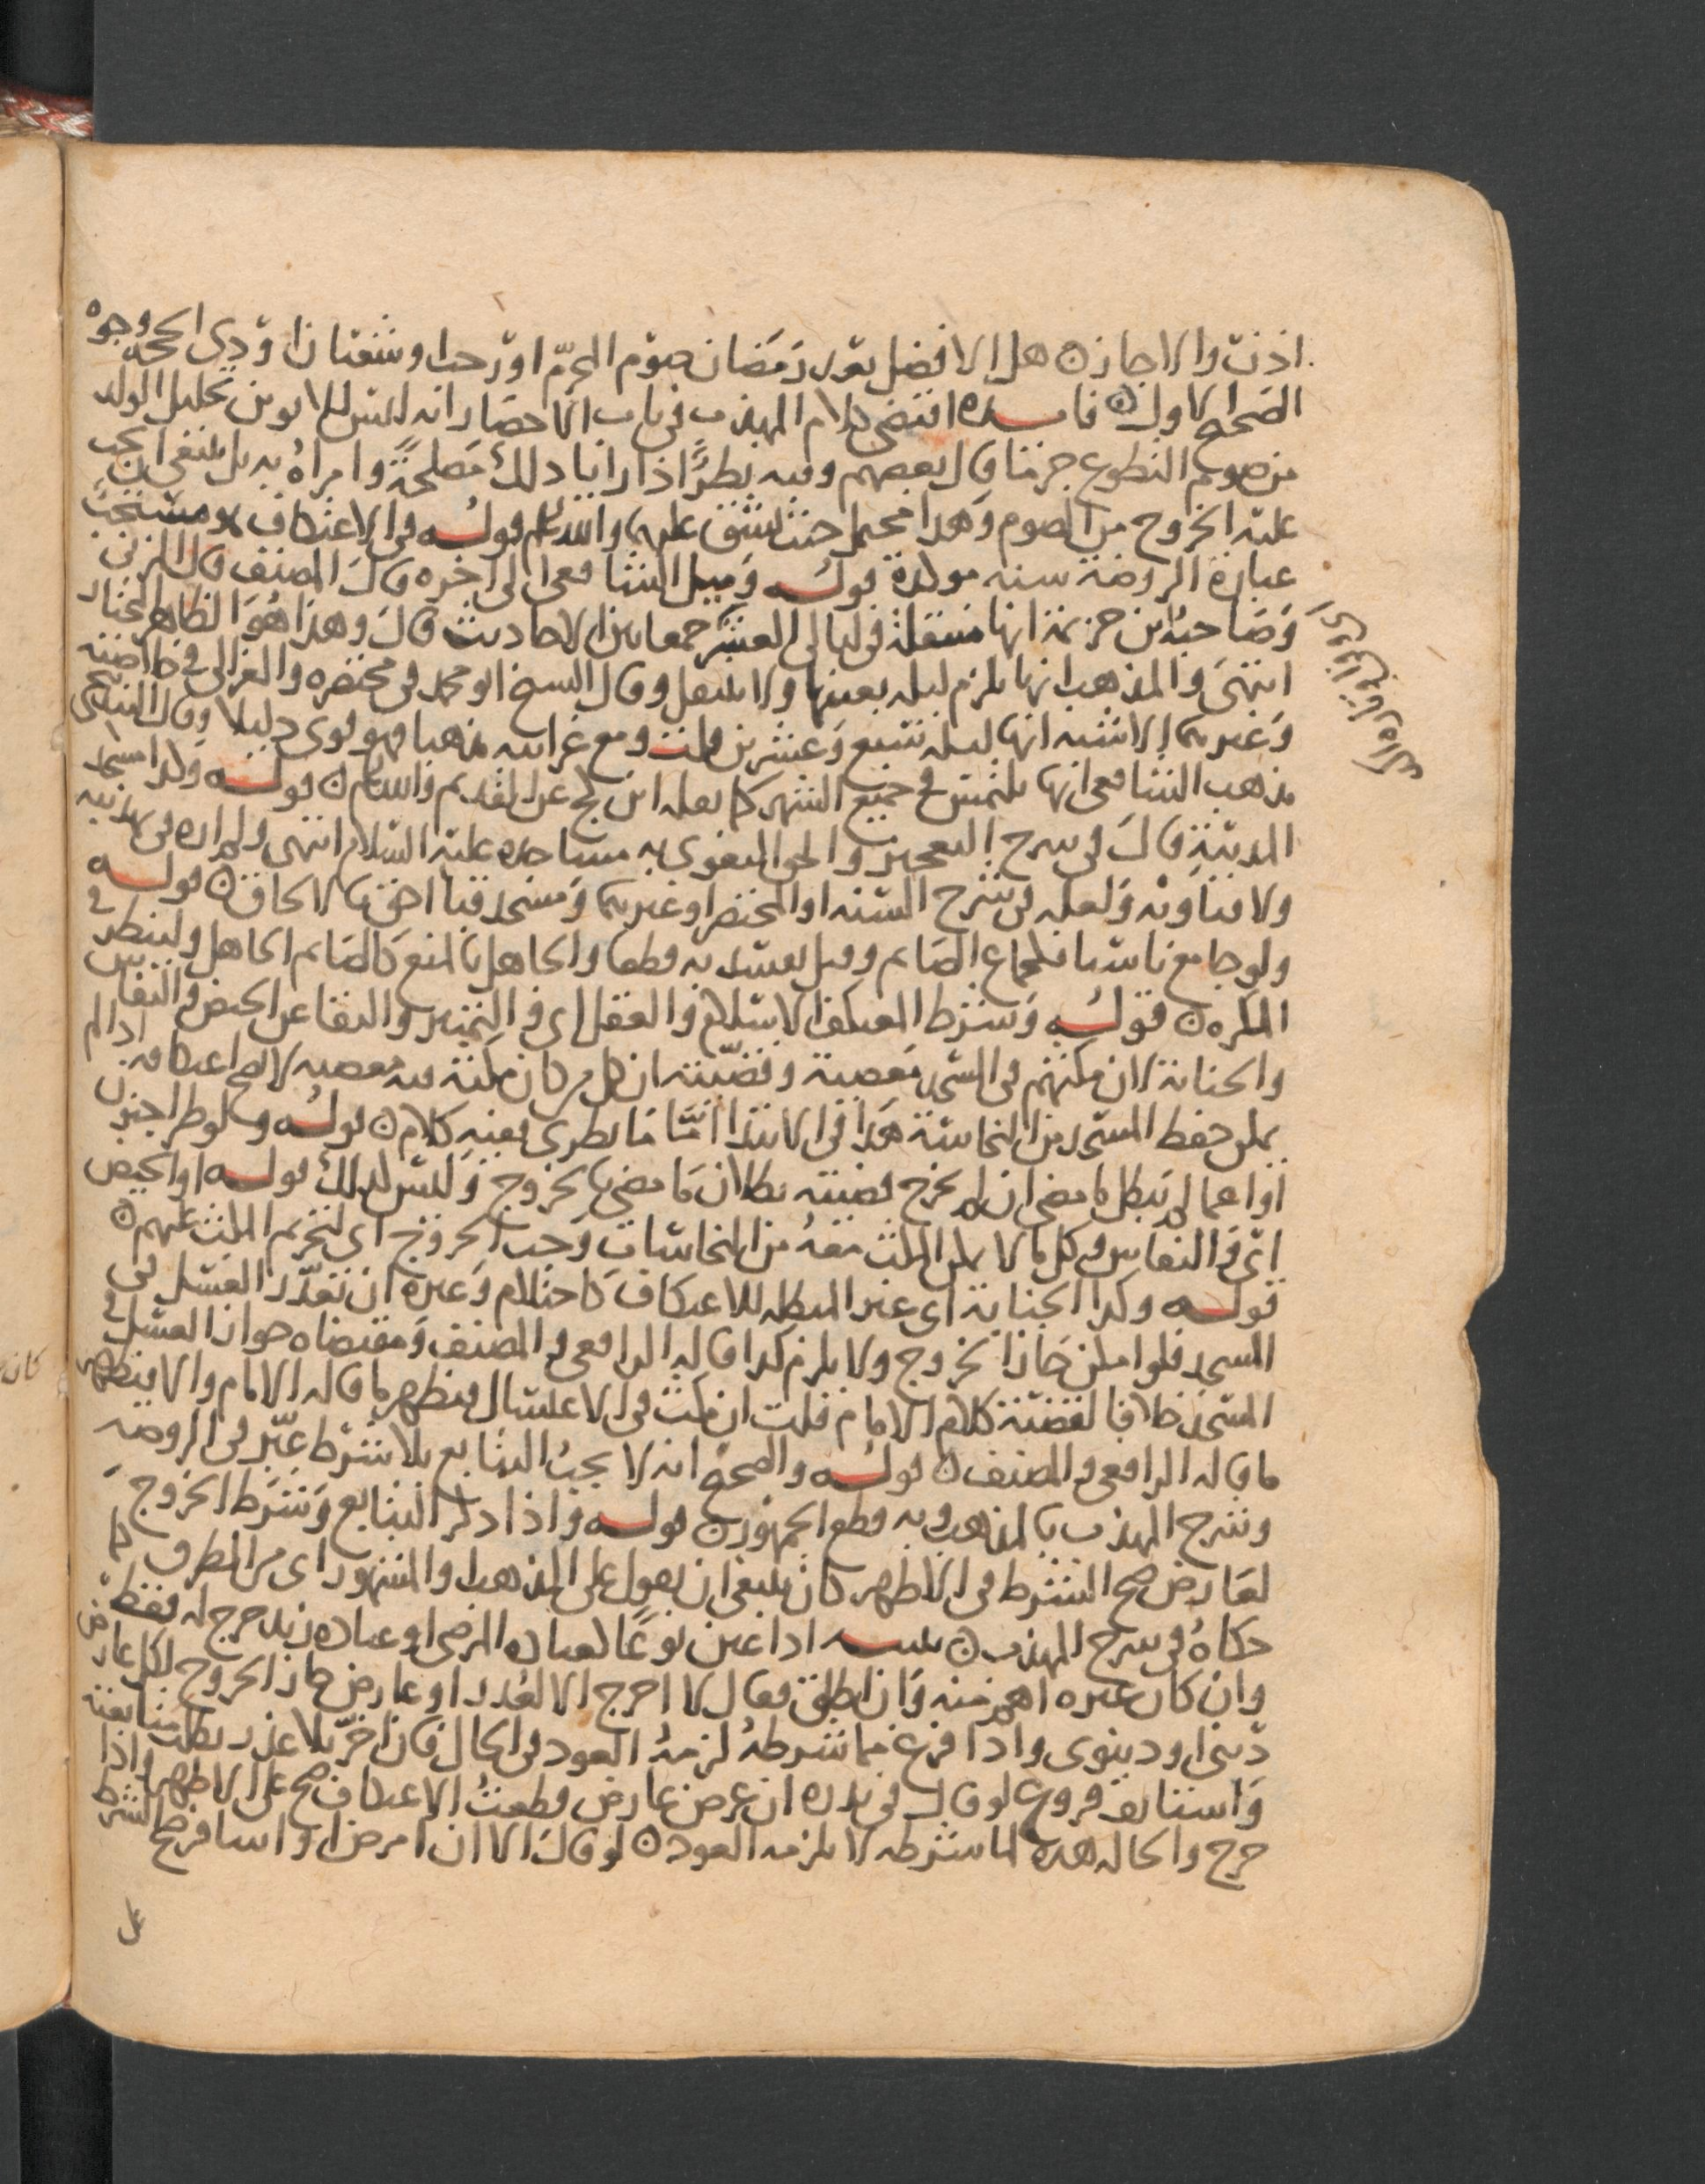 اذنت والا جازن هل الافضل بعد رمضان صوم المحرم او رجب او شعبان او ذي الحجة وجوه
الصحيح الاول فايده اقتضى كلام المهذب في باب الاحصار انه ليس للابوين تحليل الولد
من صوم التطوع جزما قال بعضهم وفيه نظر اذا رايا ذلك مصلحة وامراه به بل ينبغي ان يجب
عليه الخروج من الصوم وهذا محتمل حيث يشق عليهما والله اعلم قوله في الاعتكاف هو مستحب
عبارة الروضة سنه موكدة قوله وميل الشافعي الى اخره قال المصنف قال المزني
وصاحبه ابن خزيمة انها منتقلة في ليالي العشر جمعا بين الاحاديث قال وهذا هو الظاهر المختار
انتهى والمذهب انها تلزم ليله بعينها ولا تنتقل وقال الشيخ ابو محمد في مختصره والغزالي في خلاصته
وغيرهما الاشبه انها ليله سبع وعشرين قلت ومع غرابته مذهبا فهو قوي دليلا وقال البندنيجي
مذهب الشافعي انها تلتمس في جميع الشهر كما نقله ابن كج عن القديم والله اعلم قوله وكذا مسجد
المدينة قال في شرح التعجيز والحق البغوي به مساجده عليه السلام انتهى ولم اره في تهذيبه
ولا فتاويه ولعله في شرح السنه او المختصر او غيرهما ومسجد قبا احق بالالحاق قوله
ولو جامع ناسيا فكجماع الصايم وقيل يفسد به قطعا والجاهل بالمنع كالصايم الجاهل ولينظر في
المكره قوله وشرط المعتكف الاسلام والعقل اي والتمييز والنقا عن الحيض والنفاس
والجنابة لان مكثهم في المسجد معصية وقضيته ان كل من كان مكثه فيه معصيه لا يصح اعتكافه اذا لم
يمكن حفظ المسجد من النجاسة هذا في الابتدا اما ما يطرى ففيه كلام قوله ولو طرا جنون
او اغما لم يبطل ما مضى ان لم يخرج قضيته بطلان ما مضى بالخروج وليس كذلك قوله او الحيض
اي والنفاس وكل ما لا يمكن المكث معه من النجاسات وجب الخروج اي لتحريم المكث عليهم
قوله وكذا الجنابة اي غير المبطله للاعتكاف كاحتلام وغيره ان تعذر الغسل في
المسجد فلو امكن جاز الخروج ولا يلزم كذا قاله الرافعي والمصنف ومقتضاه جواز الغسل في
المسجد خلافا لقضية كلام الامام قلت ان مكث في الاغتسال فيظهر ما قاله الامام والا فيظهر
ما قاله الرافعي والمصنف قوله والصحيح انه لا يجب التتابع بلا شرط عبر في الروضه
وشرح المهذب بالمذهب وبه قطع الجمهور قوله واذا ذكر التتابع وشرط الخروج
لعارض صح الشرط في الاظهر كان ينبغي ان يقول على المذهب والمشهور اي من الطرق كما
حكاه في شرح المهذب تنبيه اذا عين نوعا كعياده المرضى او عياده زيد خرج له فقط
وان كان غيره اهم منه وان اطلق فقال لا اخرج الا لعذر او عارض جاز الخروج لكل عارض
ديني او دنيوي واذا فرغ مما شرطه لزمه العود في الحال فان اخر بلا عذر بطل تتابعه
واستانف فروع لو قال في نذره ان عرض عارض قطعت الاعتكاف صح على الاظهر واذا
خرج والحاله هذه لما شرطه لا يلزمه العود لو قال الا ان امرض او اسافر صح الشرط